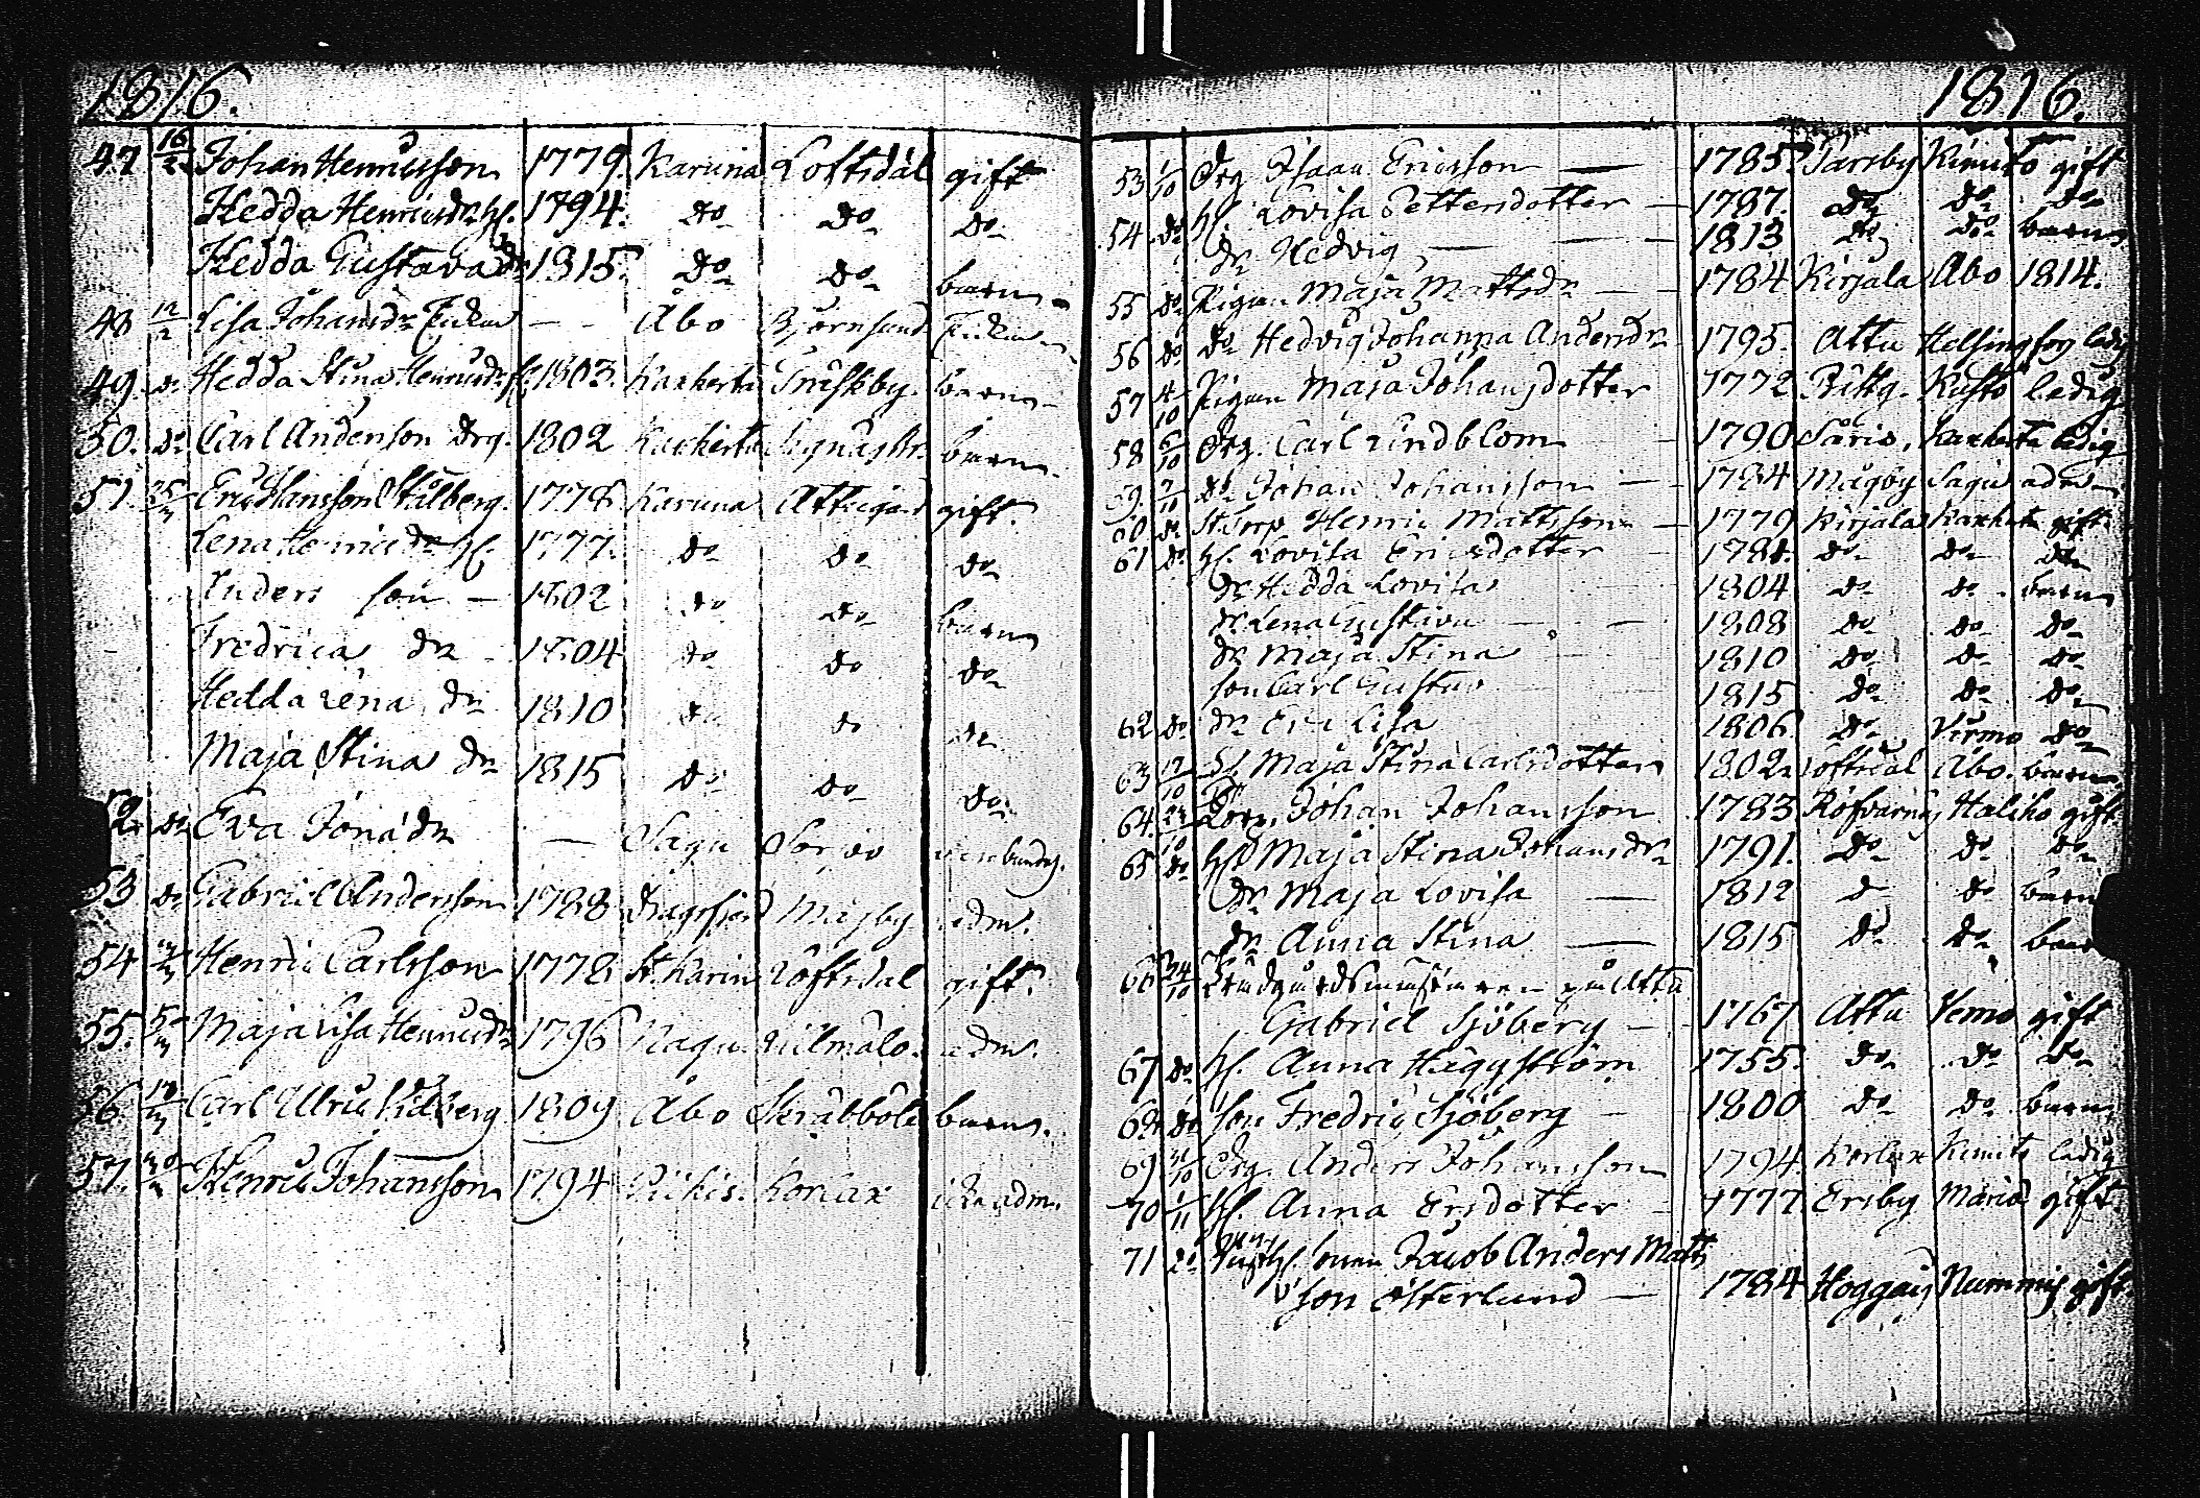 1816.
47 16/2 Johan Henricsson 1779. Karuna Loftsdal gift
Hedda Henricsdr hf. 1794. do do do
Hedda Gustava dr 1815. do do barn
48 12/2 Lisa Johansdr Enka — Åbo Björnsund Enka
49. do Hedda Stina Henricsdr 1803. Kakherta barn
50. do Carl Anderson drg. 1802 Kakherta barn
51. Eric Hansson Stålberg. 1778 Karuna Attugård gift.
Lena Henricsdr hf. 1777. do do do
Anders son — 1802 do do barn
Fredrica dr 1804 do do do
Hedda Lena dr 1810 do do do
Maja Stina dr 1815 do do do
52. do Eva Jonædr — Sagu
53 do Gabriel Andersson 1788 Dragsfjerd Mågby adm.
54 Henric Carlsson 1778 St. Karin Löftsdal gift.
55. Maja Lisa Henricsdr 1796 Nagu adm.
56. Carl Ulric Lidberg 1809 Åbo Skräbböle barn.
57. Henric Johansson 1794 Piikis. Korlax icke adm.
1816.
53 1/10 Drg Isaac Ericsson — 1785. Särsby Kimito gift
54 do hf Lovisa Pettersdotter — 1787. do do do
dr Hedvig — 1813 do do barn
55 do Pigan Maja Mattsdr — 1784 Kirjala Åbo 1814.
56 do do Hedvig Johanna Andersdr 1795. Attu Helsingfors ledig
57 4/10 Pigan Maja Johansdotter 1772 Kustö ledig
58 6/10 Drg. Carl Lindblom 1790 Säris, Kakherta ledig
59. 7/10 do Johan Johansson — 1784 Mågby Sagu adm
60 do Henric Mattsson — 1779 Kirjala Kakherta gift.
61 do hf. Lovisa Ericsdotter 1781. do do do
dr Hedda Lovisa 1804 do do barn
dr Lena Gustava — 1808 do do do
dr Maja Stina 1810 do do do
son Carl Gustav 1815 do do do
62 do dr Eva Lisa 1806 do Virmo do
63 17/10 Maja Stina Carlsdotter 1802 Loftsdal Åbo. barn
64. Johan Johansson 1783 Röfvarnäs Haliko gift.
65 do hf Maja Stina Johansdr 1791. do do do
dr Maja Lovisa — 1812 do do barn
dr Anna Stina — 1815 do do barn
66 24/10 Trädgårdsmästaren på Attu
Gabriel Sjöberg — 1767 Attu Vemo gift
67 do hf. Anna Häggström 1755. do do do
68 do son Fredric Sjöberg — 1800 do do barn
69 31/10 Drg. Anders Johansson 1794. Korlax Kimito ledig
70 1/11 hf. Anna Ersdotter 1777. Ersby Mariæ gift.
71 do Jacob Anders Matts
son Österlund — 1784 Hoggais Nummis gift.